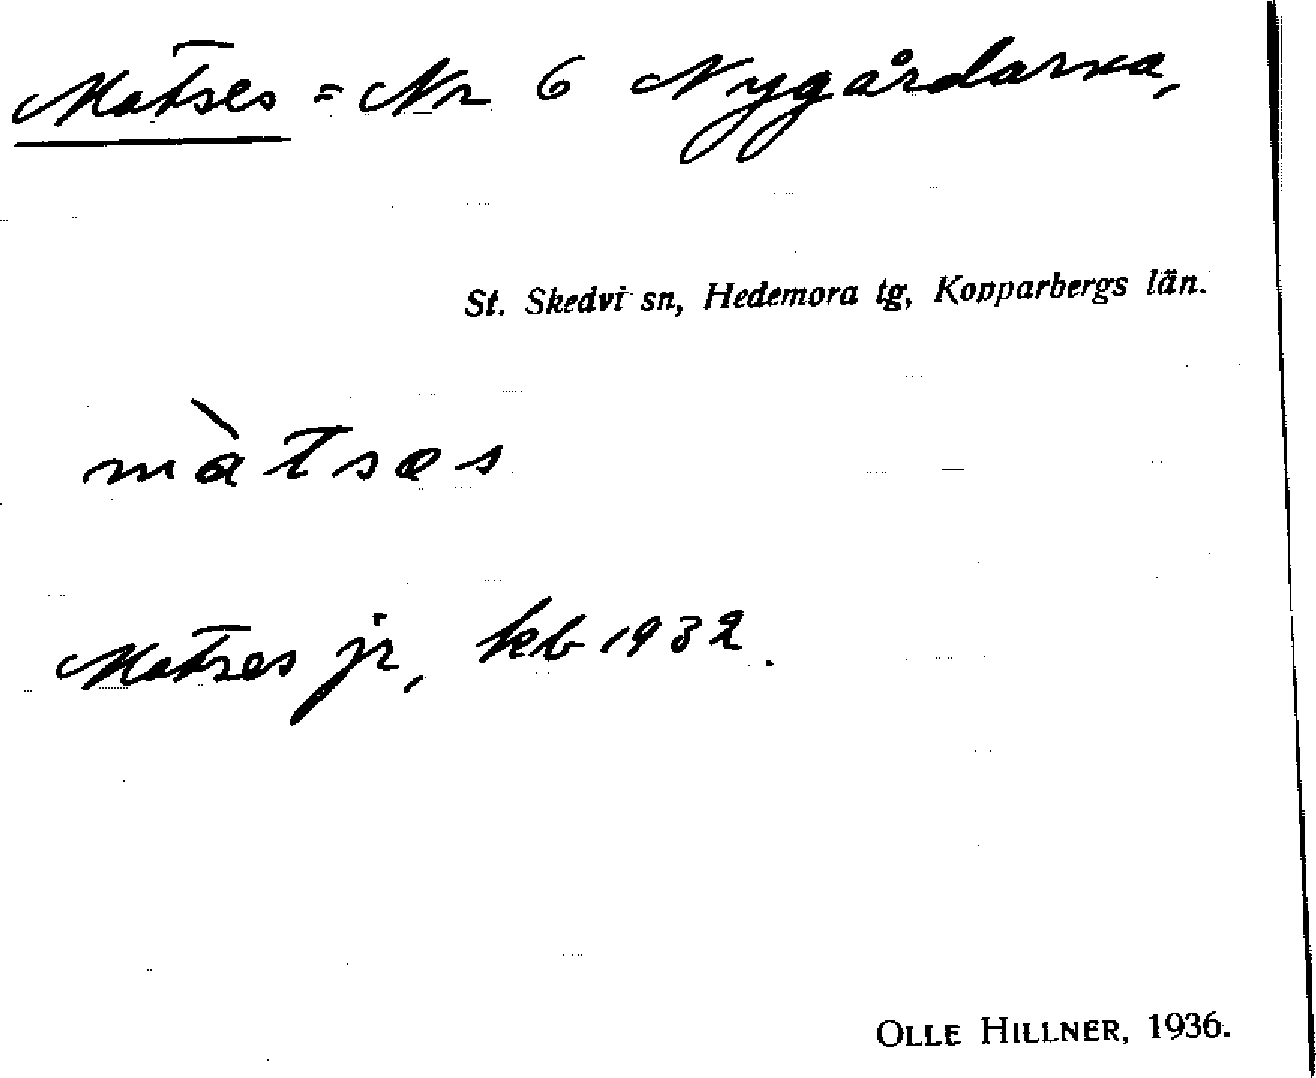 Matses = Nr 6 Nygårdarna,
St. Skedvi sn, Hedemora tg, Kopparbergs län.
màtsəs
Matses jr, kb 1932.
OLLE HILLNER, 1936.